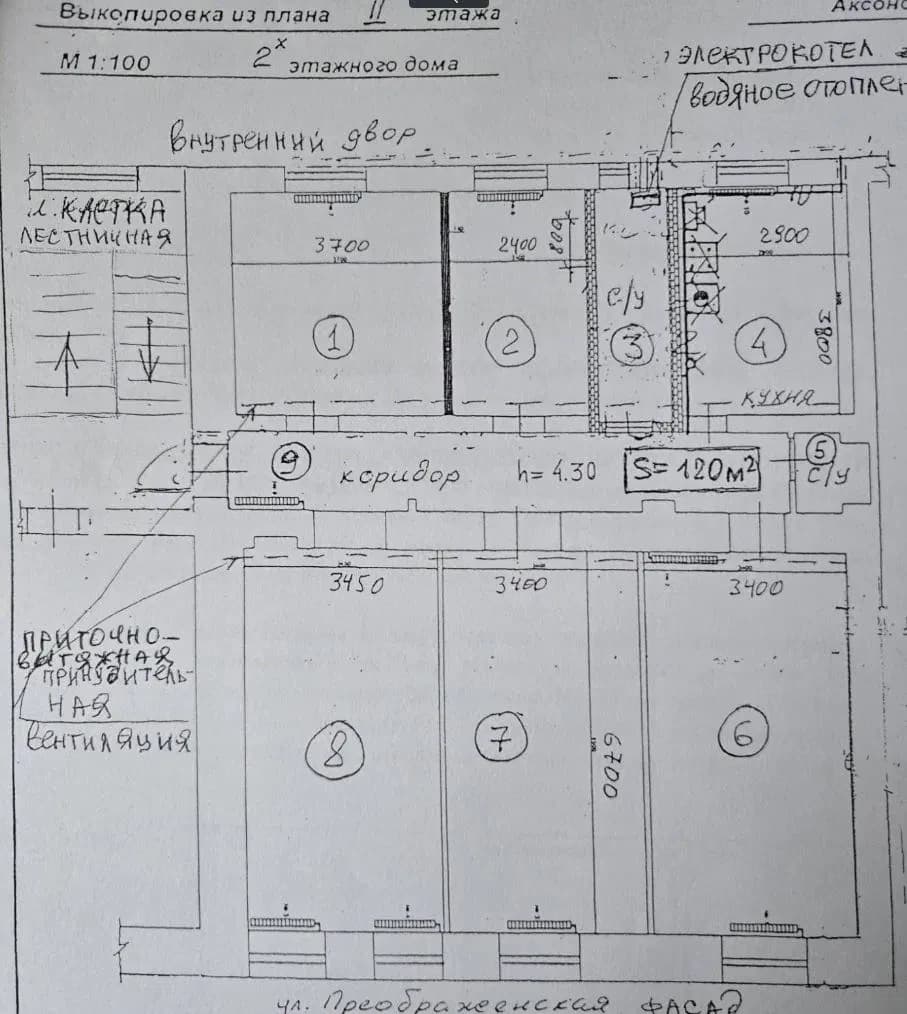 Выкопировка из плана II этажа
М 1:100 2х этажного дома
ЭЛЕКТРОКОТЕЛ
ВОДЯНОЕ ОТОПЛЕН
ВНУТРЕННИЙ ДВОР
Л. КЛЕТКА
ЛЕСТНИЧНАЯ
3700
2400
800
2900
С/У
1
2
3
4
3800
КУХНЯ
9
коридор
h= 4.30
S= 120 м²
5
С/У
3450
3400
3400
ПРИТОЧНО-
ВЫТЯЖНАЯ
ПРИНУДИТЕЛЬ-
НАЯ
ВЕНТИЛЯЦИЯ
8
7
6700
6
ул. Преображеенская ФАСАД